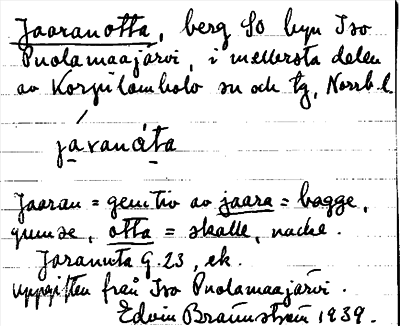 Jaaranotta, berg SO byn Iso
Puolamaajärvi, i mellersta delen
av Korpilombolo sn och tg, Norrb. l.
jāvanāta
Jaaran = genitiv av jaara = bagge,
gumse, otta = skalle, nacke.
Jaranuta G. 23, ek.
uppgiften från Iso Puolamaajärvi.
Edvin Brännström 1939.